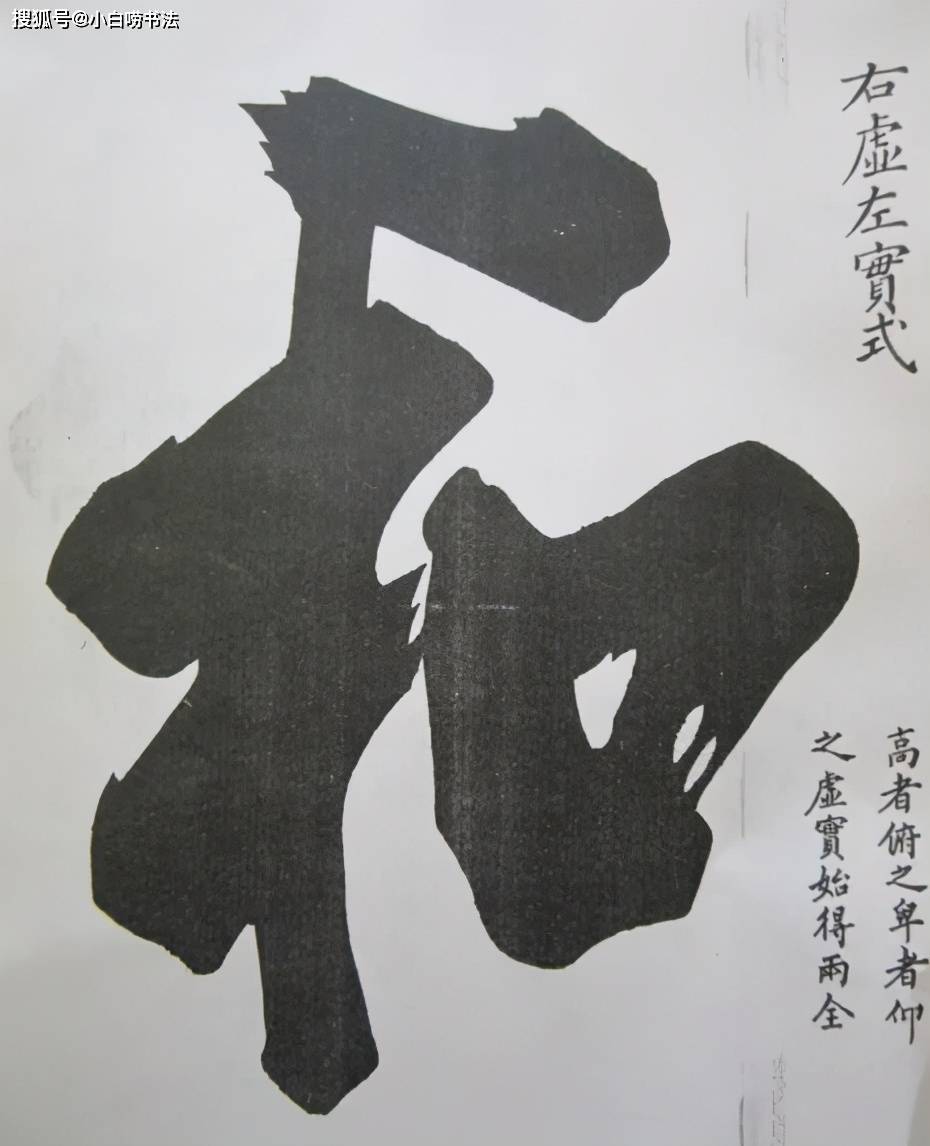 搜狐号@小白唠书法
右虛左實式
和
高者俯之卑者仰
之虛實始得兩全